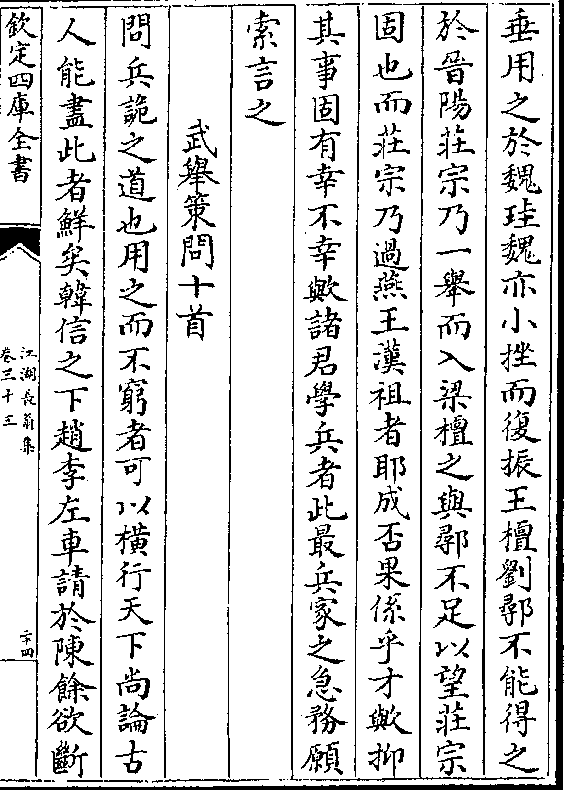 垂用之於魏珪魏亦小挫而復振王檀劉鄩不能得之
於晉陽莊宗乃一舉而入梁檀之與鄩不足以望莊宗
固也而莊宗乃過燕王漢祖者耶成否果係乎才歟抑
其事固有幸不幸歟諸君學兵者此最兵家之急務願
索言之
武舉策問十首
問兵詭之道也用之而不窮者可以橫行天下尚論古
人能盡此者鮮矣韓信之下趙李左車請於陳餘欲斷
欽定四庫全書
江湖長翁集
卷三十三
二十四